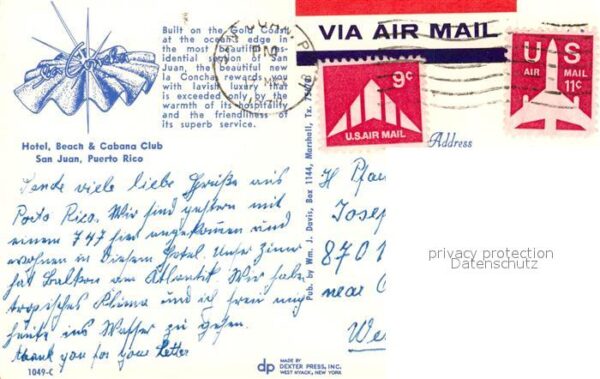 La Concha
Hotel, Beach & Cabana Club
San Juan, Puerto Rico
Built on the Gold Coast
at the ocean's edge in
the most beautiful res-
idential section of San
Juan, the beautiful new
La Concha rewards you
with lavish luxury that
is exceeded only by the
warmth of its hospitality
and the friendliness of
its superb service.
SAN JUAN, P.
PM
VIA AIR MAIL
9c
U.S. AIR MAIL
US
AIR MAIL
11c
Address
Sende viele liebe Grüße aus
Porto Rico. Wir sind gestern mit
einem 747 hier angekommen und
wohnen in diesem Hotel. Unser Zimmer
hat Balkon am Atlantik. Wir haben
tropisches Klima und ich freu mich
heute ins Wasser zu gehen.
thank you for your Letter
Pub. by Wm. J. Davis, Box 1144, Marshall, Tex.
H Pfar
Josep
8701
near
We
privacy protection
Datenschutz
1049-C
dp
MADE BY
DEXTER PRESS, INC.
WEST NYACK, NEW YORK